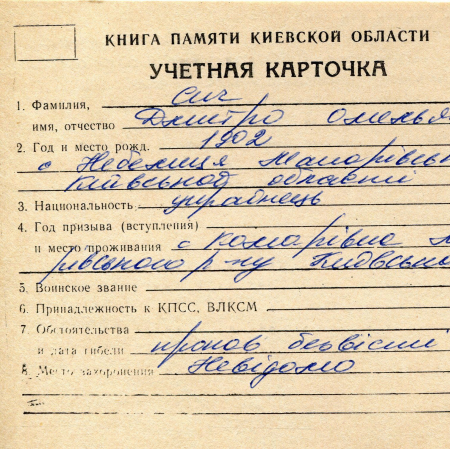 КНИГА ПАМЯТИ КИЕВСКОЙ ОБЛАСТИ
УЧЕТНАЯ КАРТОЧКА
1. Фамилия, Сич
имя, отчество Дмитро Омелья
2. Год и место рожд. 1902
с Небелиця Макарівськ
Київської області
3. Национальность українець
4. Год призыва (вступления)
и место проживания с Комарівка М
рівського р-ну Київсько
5. Воинское звание
6. Принадлежность к КПСС, ВЛКСМ
7. Обстоятельства
и дата гибели пропав безвісти
8. Место захоронения Невідомо